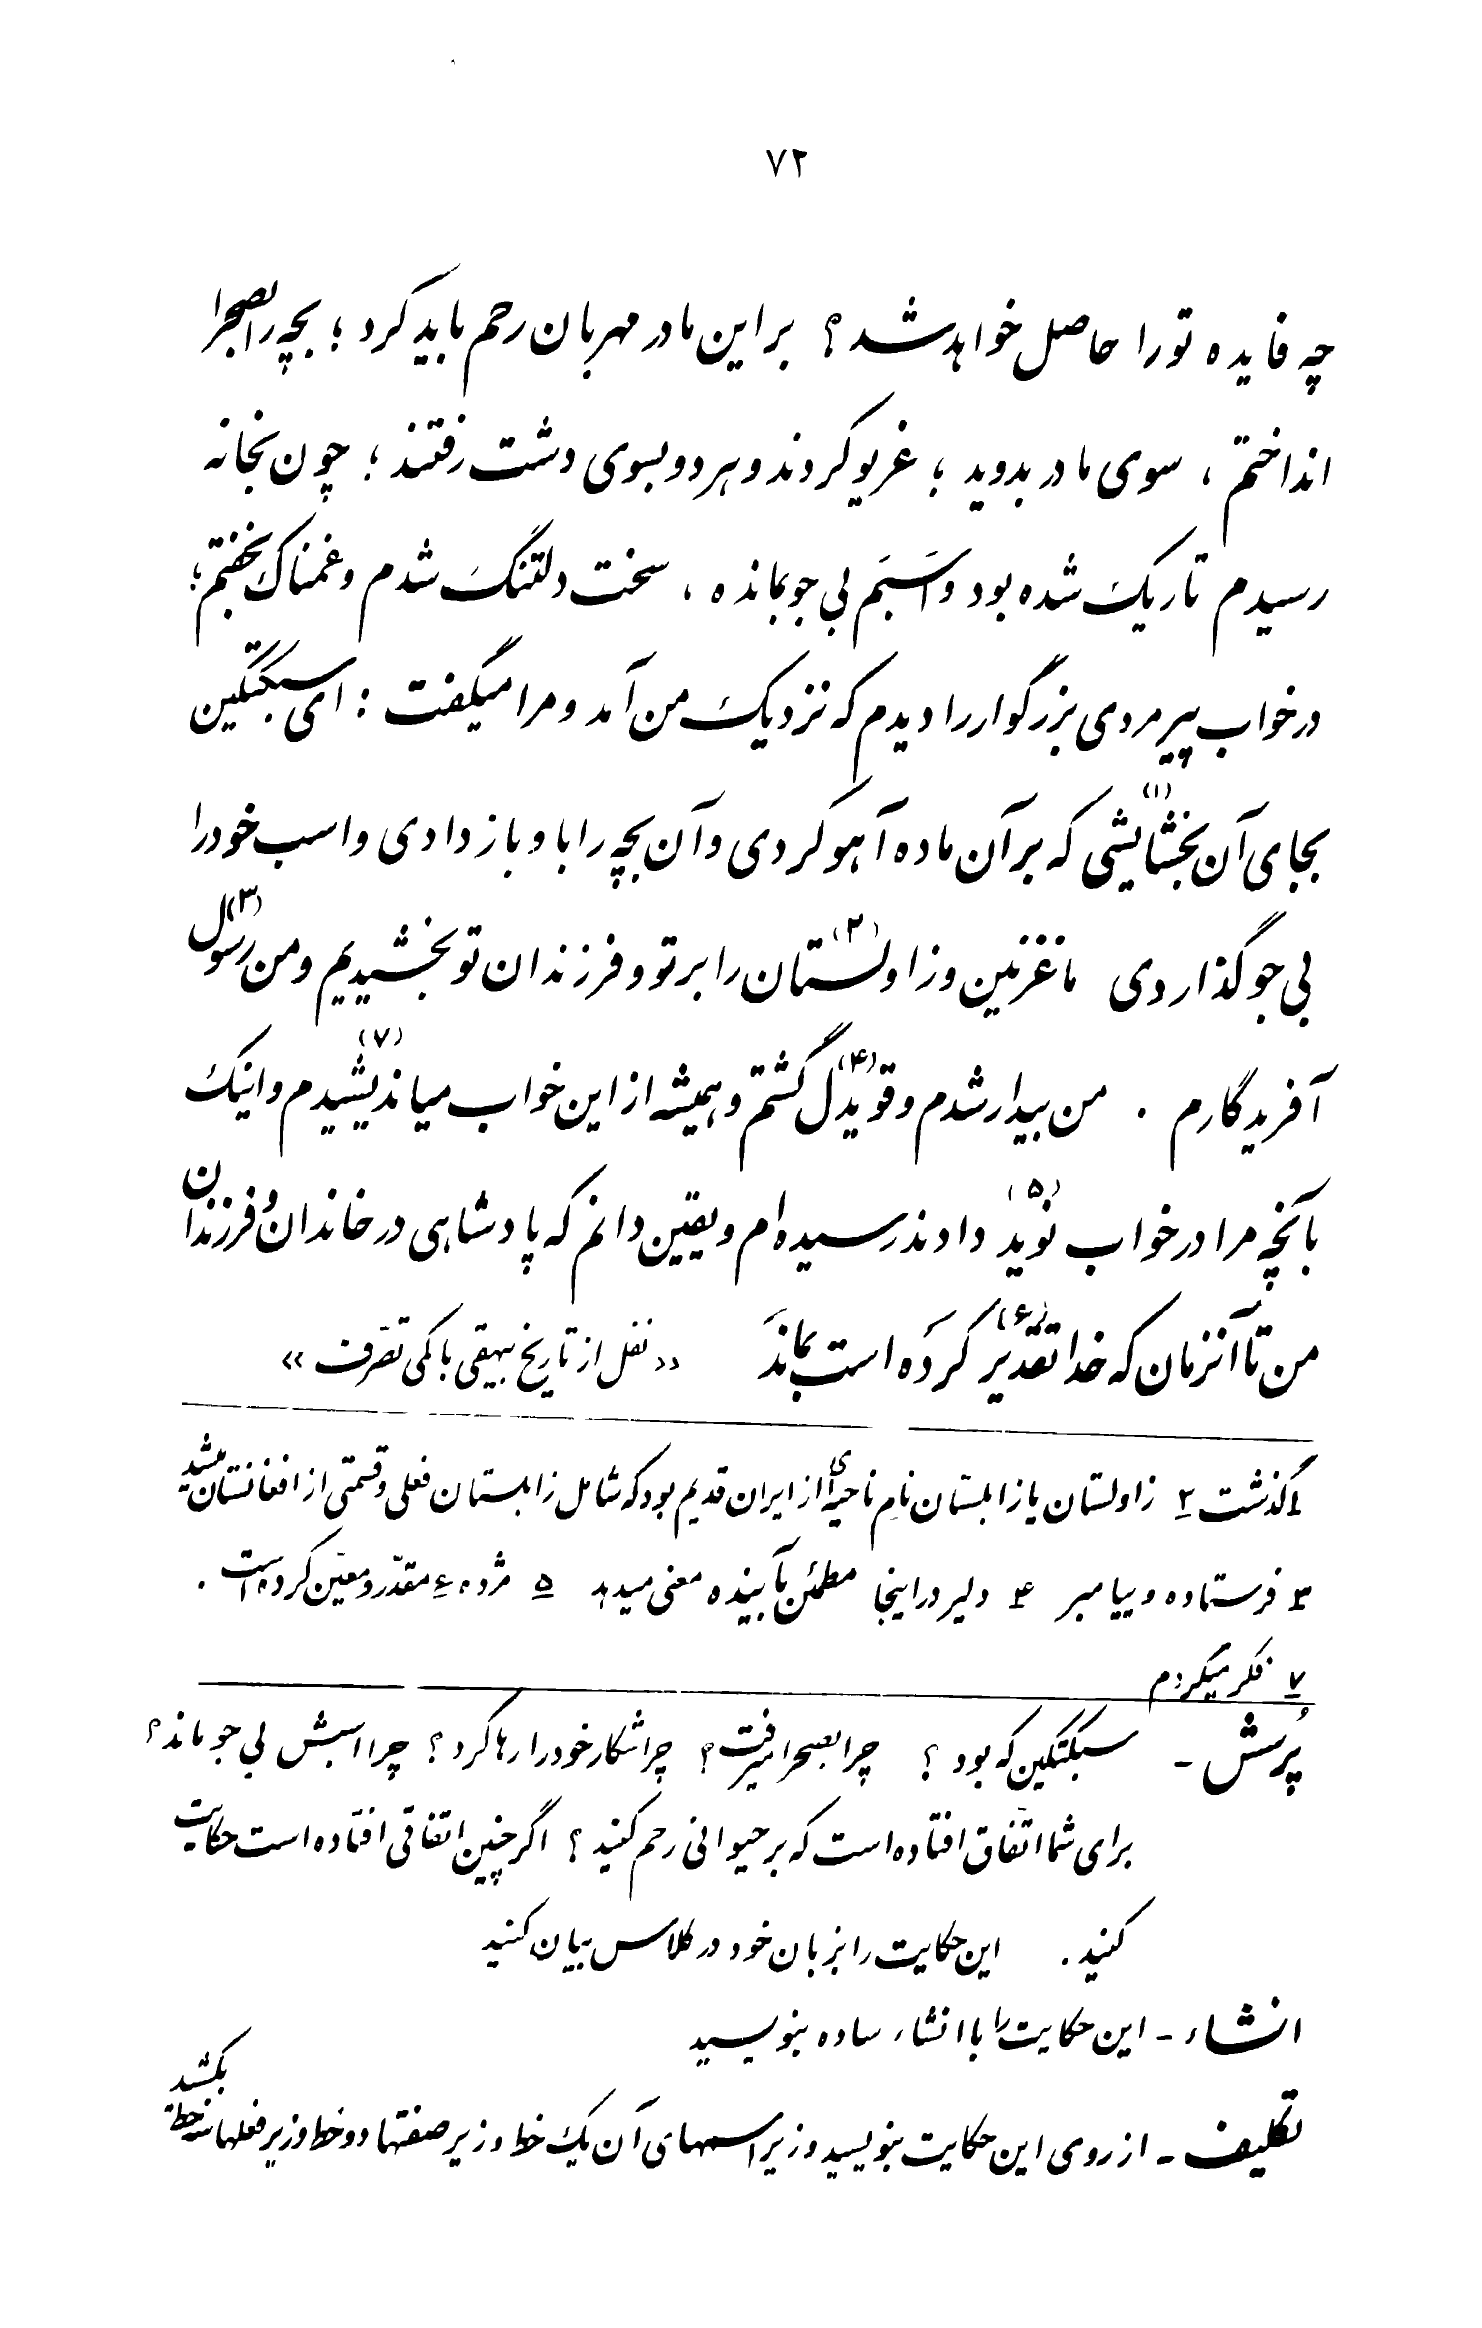 ۷۲
چه فایده تو را حاصل خواهد شد ؟ بر این مادر مهربان رحم باید کرد ؛ بچه را بصحرا
انداختم ، سوی مادر بدوید ؛ غریو کردند و هر دو بسوی دشت رفتند ؛ چون بخانه
رسیدم تاریک شده بود و اسبم بی جو بمانده ، سخت دلتنگ شدم و غمناک بخفتم ؛
در خواب پیرمردی بزرگوار را دیدم که نزدیک من آمد و مرا میگفت : ای سبکتگین
بجای آن بخشایشی (۱) که بر آن ماده آهو کردی و آن بچه را باو باز دادی و اسب خود را
بی جو گذاردی ما غزنین و زاولستان (۲) را بر تو و فرزندان تو بخشیدیم و من رسول (۳)
آفریدگارم . من بیدار شدم و قویدل (۴) گشتم و همیشه از این خواب میاندیشیدم (۷) و اینک
بآنچه مرا در خواب نوید (۵) دادند رسیده ام و یقین دانم که پادشاهی در خاندان و فرزندان
من تا آنزمان که خدا تقدیر (۶) کرده است بماند « نقل از تاریخ بیهقی با کمی تصرّف »
۱ گذشت ۲ زاولستان یا زابلستان نام ناحیه‌ای از ایران قدیم بود که شامل زابلستان فعلی و قسمتی از افغانستان میشد
۳ فرستاده و پیامبر ۴ دلیر در اینجا مطمئن بآینده معنی میدهد ۵ مژده ۶ مقدّر و معیّن کرده است .
۷ فکر میکردم
پُرسش - سبکتگین که بود ؟ چرا بصحرا میرفت ؟ چرا شکار خود را رها کرد ؟ چرا اسبش بی جو ماند ؟
برای شما اتّفاق افتاده است که بر حیوانی رحم کنید ؟ اگر چنین اتفاقی افتاده است حکایت
کنید . این حکایت را بزبان خود در کلاس بیان کنید
انشاء - این حکایت را با انشاء ساده بنویسید
تکلیف - از روی این حکایت بنویسید و زیر اسمهای آن یک خط و زیر صفتها دو خط و زیر فعلها سه خط بکشید